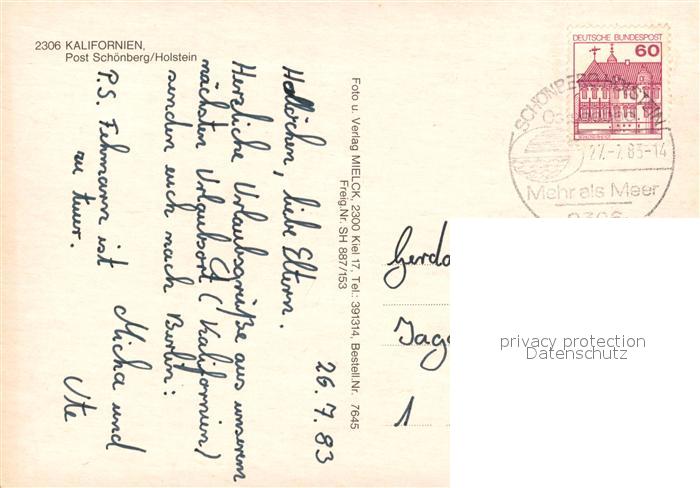 2306 KALIFORNIEN,
Post Schönberg/Holstein
26.7.83
Hallöchen, liebe Eltern.
Herzliche Urlaubsgrüße aus unserem
nächsten Urlaubsort (Kalifornien)
senden euch nach Berlin:
Micha und
Ute
P.S. Fehmarn ist
zu teuer.
Foto u. Verlag MIELCK, 2300 Kiel 17, Tel.: 391314, Bestell.Nr. 7645
Freig.Nr. SH 887/153
DEUTSCHE BUNDESPOST
60
SCHÖNBERG, HOLSTEIN
27.-7.83-14
Mehr als Meer
2306
Gerda
Jage
1
privacy protection
Datenschutz